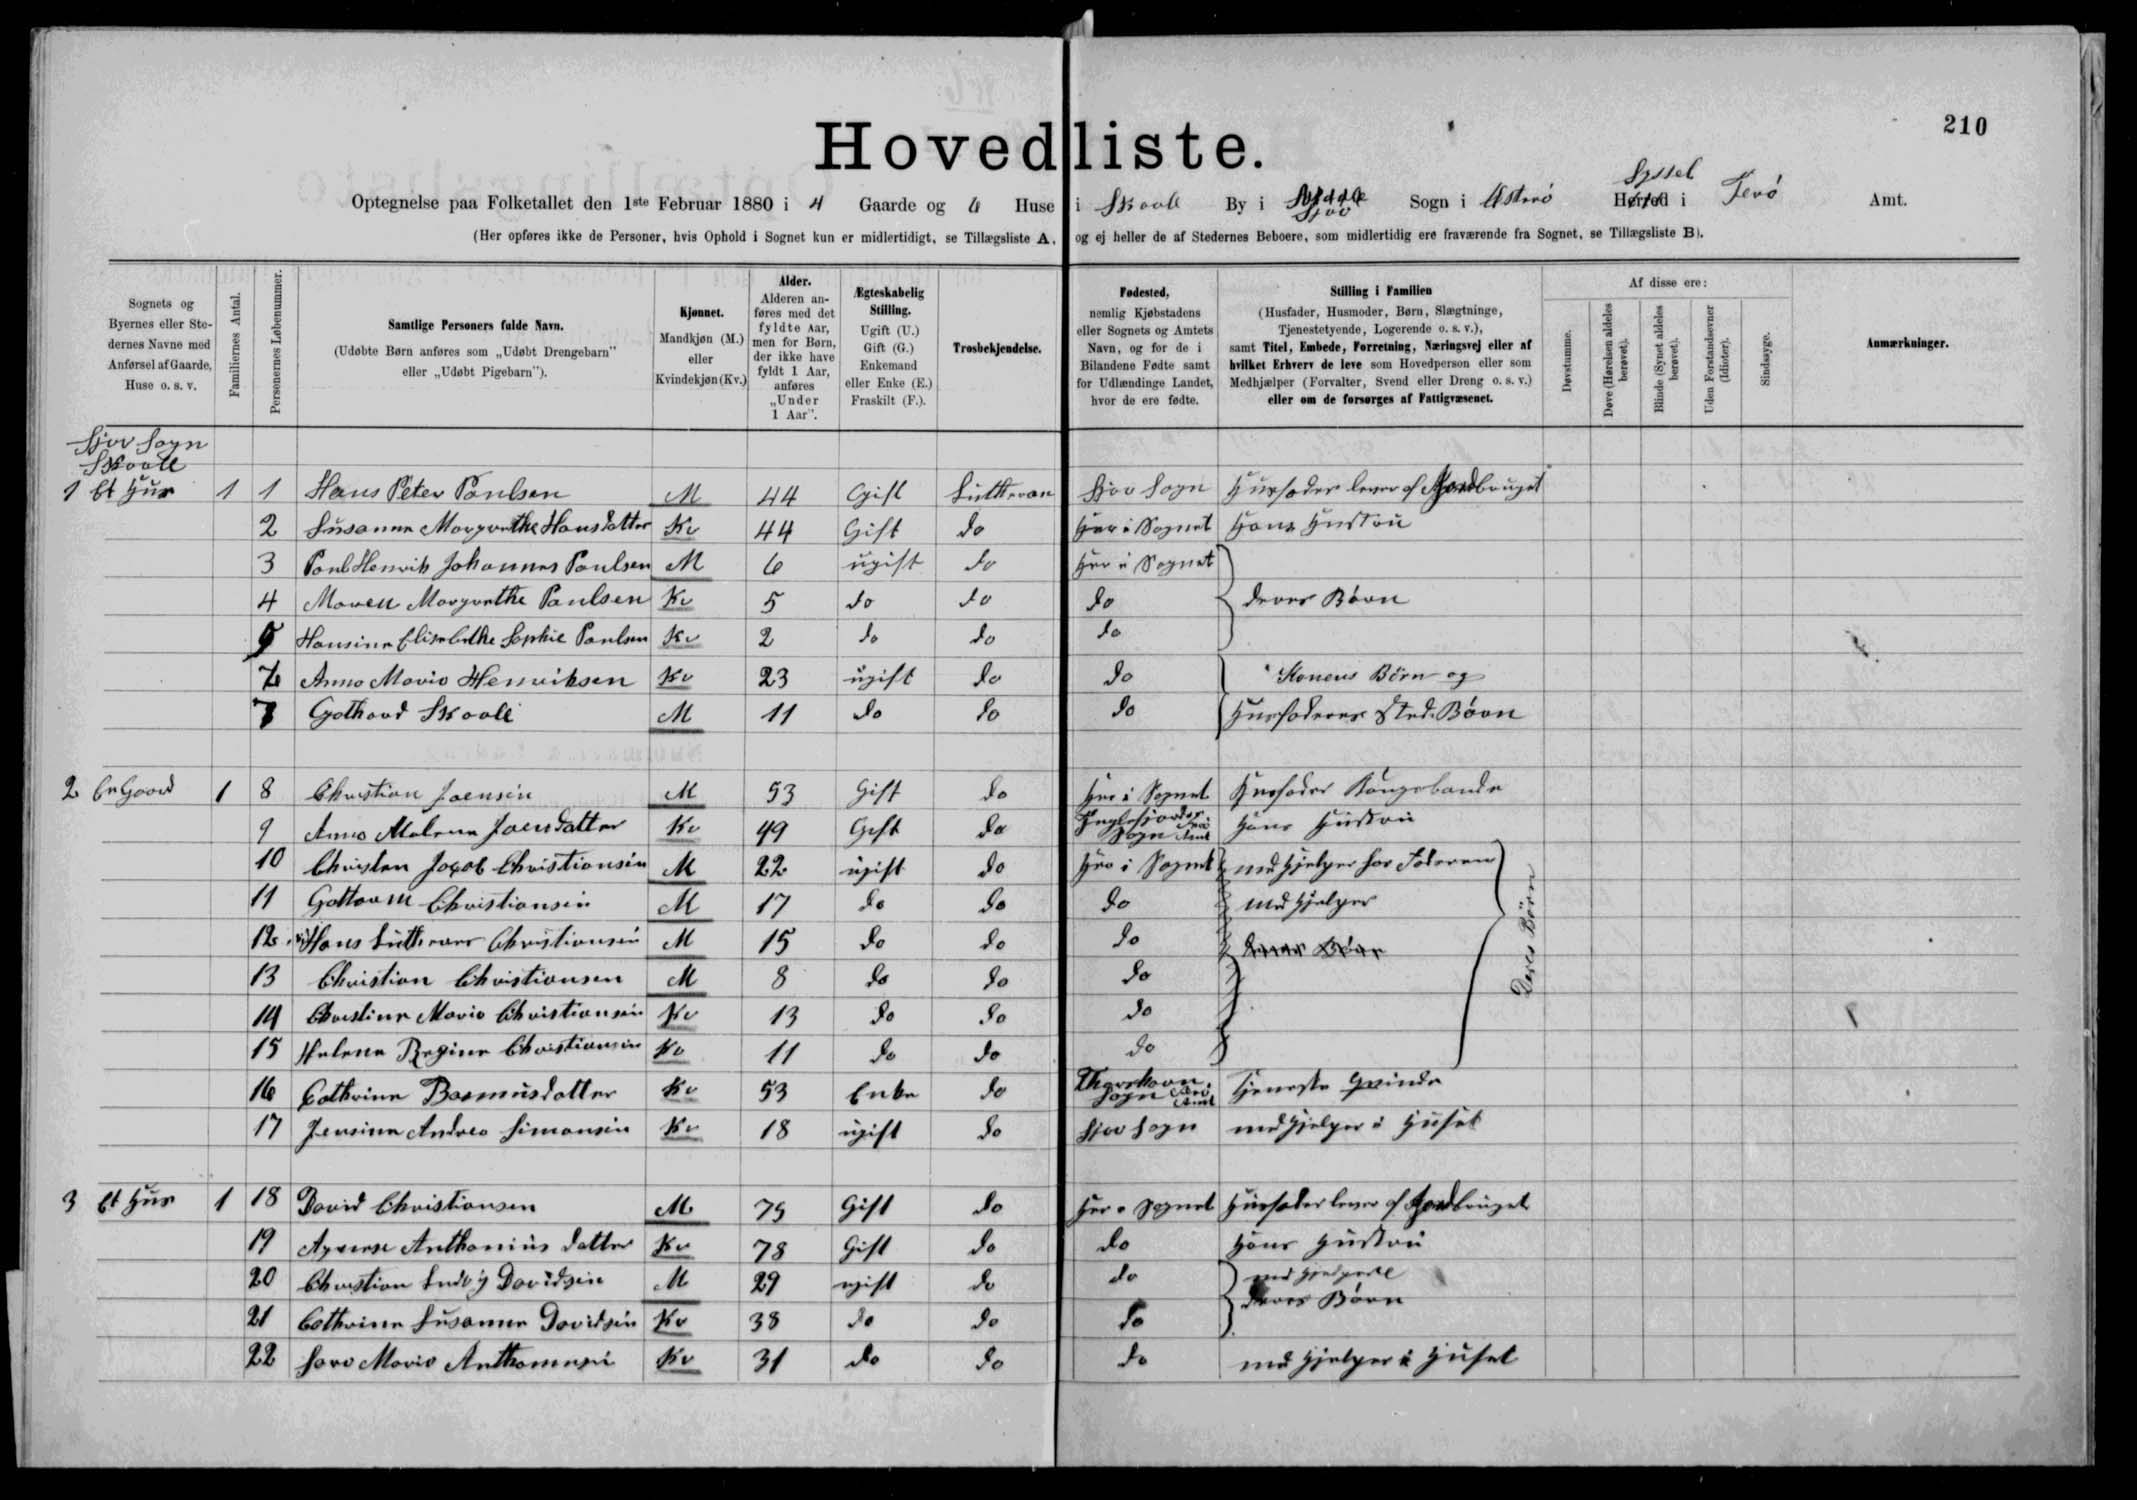 210
Hovedliste.
Optegnelse paa Folketallet den 1ste Februar 1880 i 4 Gaarde og 6 Huse i Skaale By i Sjov Sogn i Østerø Syssel Herred i Ferø Amt.
(Her opføres ikke de Personer, hvis Ophold i Sognet kun er midlertidigt, se Tillægsliste A, og ej heller de af Stedernes Beboere, som midlertidig ere fraværende fra Sognet, se Tillægsliste B).
Sognets og Byernes eller Stedernes Navne med Anførsel af Gaarde, Huse o. s. v.
Familiernes Antal.
Personernes Løbenummer.
Samtlige Personers fulde Navn.
(Udøbte Børn anføres som „Udøbt Drengebarn" eller „Udøbt Pigebarn").
Kjønnet.
Mandkjøn (M.) eller Kvindekjøn (Kv.)
Alder.
Alderen anføres med det fyldte Aar, men for Børn, der ikke have fyldt 1 Aar, anføres „Under 1 Aar".
Ægteskabelig Stilling.
Ugift (U.) Gift (G.) Enkemand eller Enke (E.) Fraskilt (F.).
Trosbekjendelse.
Fødested,
nemlig Kjøbstadens eller Sognets og Amtets Navn, og for de i Bilandene Fødte samt for Udlændinge Landet, hvor de ere fødte.
Stilling i Familien
(Husfader, Husmoder, Børn, Slægtninge, Tjenestetyende, Logerende o. s. v.),
samt Titel, Embede, Forretning, Næringsvej eller af hvilket Erhverv de leve som Hovedperson eller som Medhjælper (Forvalter, Svend eller Dreng o. s. v.) eller om de forsørges af Fattigvæsenet.
Af disse ere:
Døvstumme.
Døve (Hørelsen aldeles berøvet).
Blinde (Synet aldeles berøvet).
Uden Forstandsevner (Idioter).
Sindssyge.
Anmærkninger.
Sjov Sogn
Skaale
1 Et Hus 1 1 Hans Peter Poulsen M 44 Gift Lutheran Sjov Sogn Husfader lever af Jordbruget
2 Susanne Margrethe Hansdatter Kv 44 Gift do Her i Sognet Hans Hustru
3 Poul Henrik Johannes Poulsen M 6 ugift do Her i Sognet
4 Maren Margrethe Poulsen Kv 5 do do do deres Børn
5 Hansine Elisabethe Sophie Poulsen Kv 2 do do do
6 Anna Maria Henriksen Kv 23 ugift do do Konens Børn og
7 Gothard Skaale M 11 do do do Husfaderens Sted Børn
2 En Gaard 1 8 Christian Joensen M 53 Gift do Her i Sognet Husfader Kongsbonde
9 Anna Malene Joensdatter Kv 49 Gift do Fuglefjorder Sogn Ferø Amt Hans Hustru
10 Christen Jacob Christiansen M 22 ugift do Her i Sognet medhjelper for Faderen
11 Guttorm Christiansen M 17 do do do medhjelper
12 Hans Christiansen M 15 do do do deres Børn
13 Christian Christiansen M 8 do do do
Deres Børn
14 Christine Maria Christiansen Kv 13 do do do
15 Helene Regine Christiansen Kv 11 do do do
16 Cathrine Rasmusdatter Kv 53 Enke do Thorshavn Sogn Ferø Amt Tjeneste Qvinde
17 Jensine Andrea Simonsen Kv 18 ugift do Sjov Sogn medhjelper i Huset
3 Et Hus 1 18 David Christiansen M 75 Gift do Her i Sognet Husfader lever af Jordbruget
19 Anthonius datter Kv 78 Gift do do Hans Hustru
20 Christian Ludvig Davidsen M 29 ugift do do medhjelpere
deres Børn
21 Cathrine Susanne Davidsen Kv 38 do do do
22 Sara Maria Anthoniusen Kv 31 do do do medhjelper i Huset